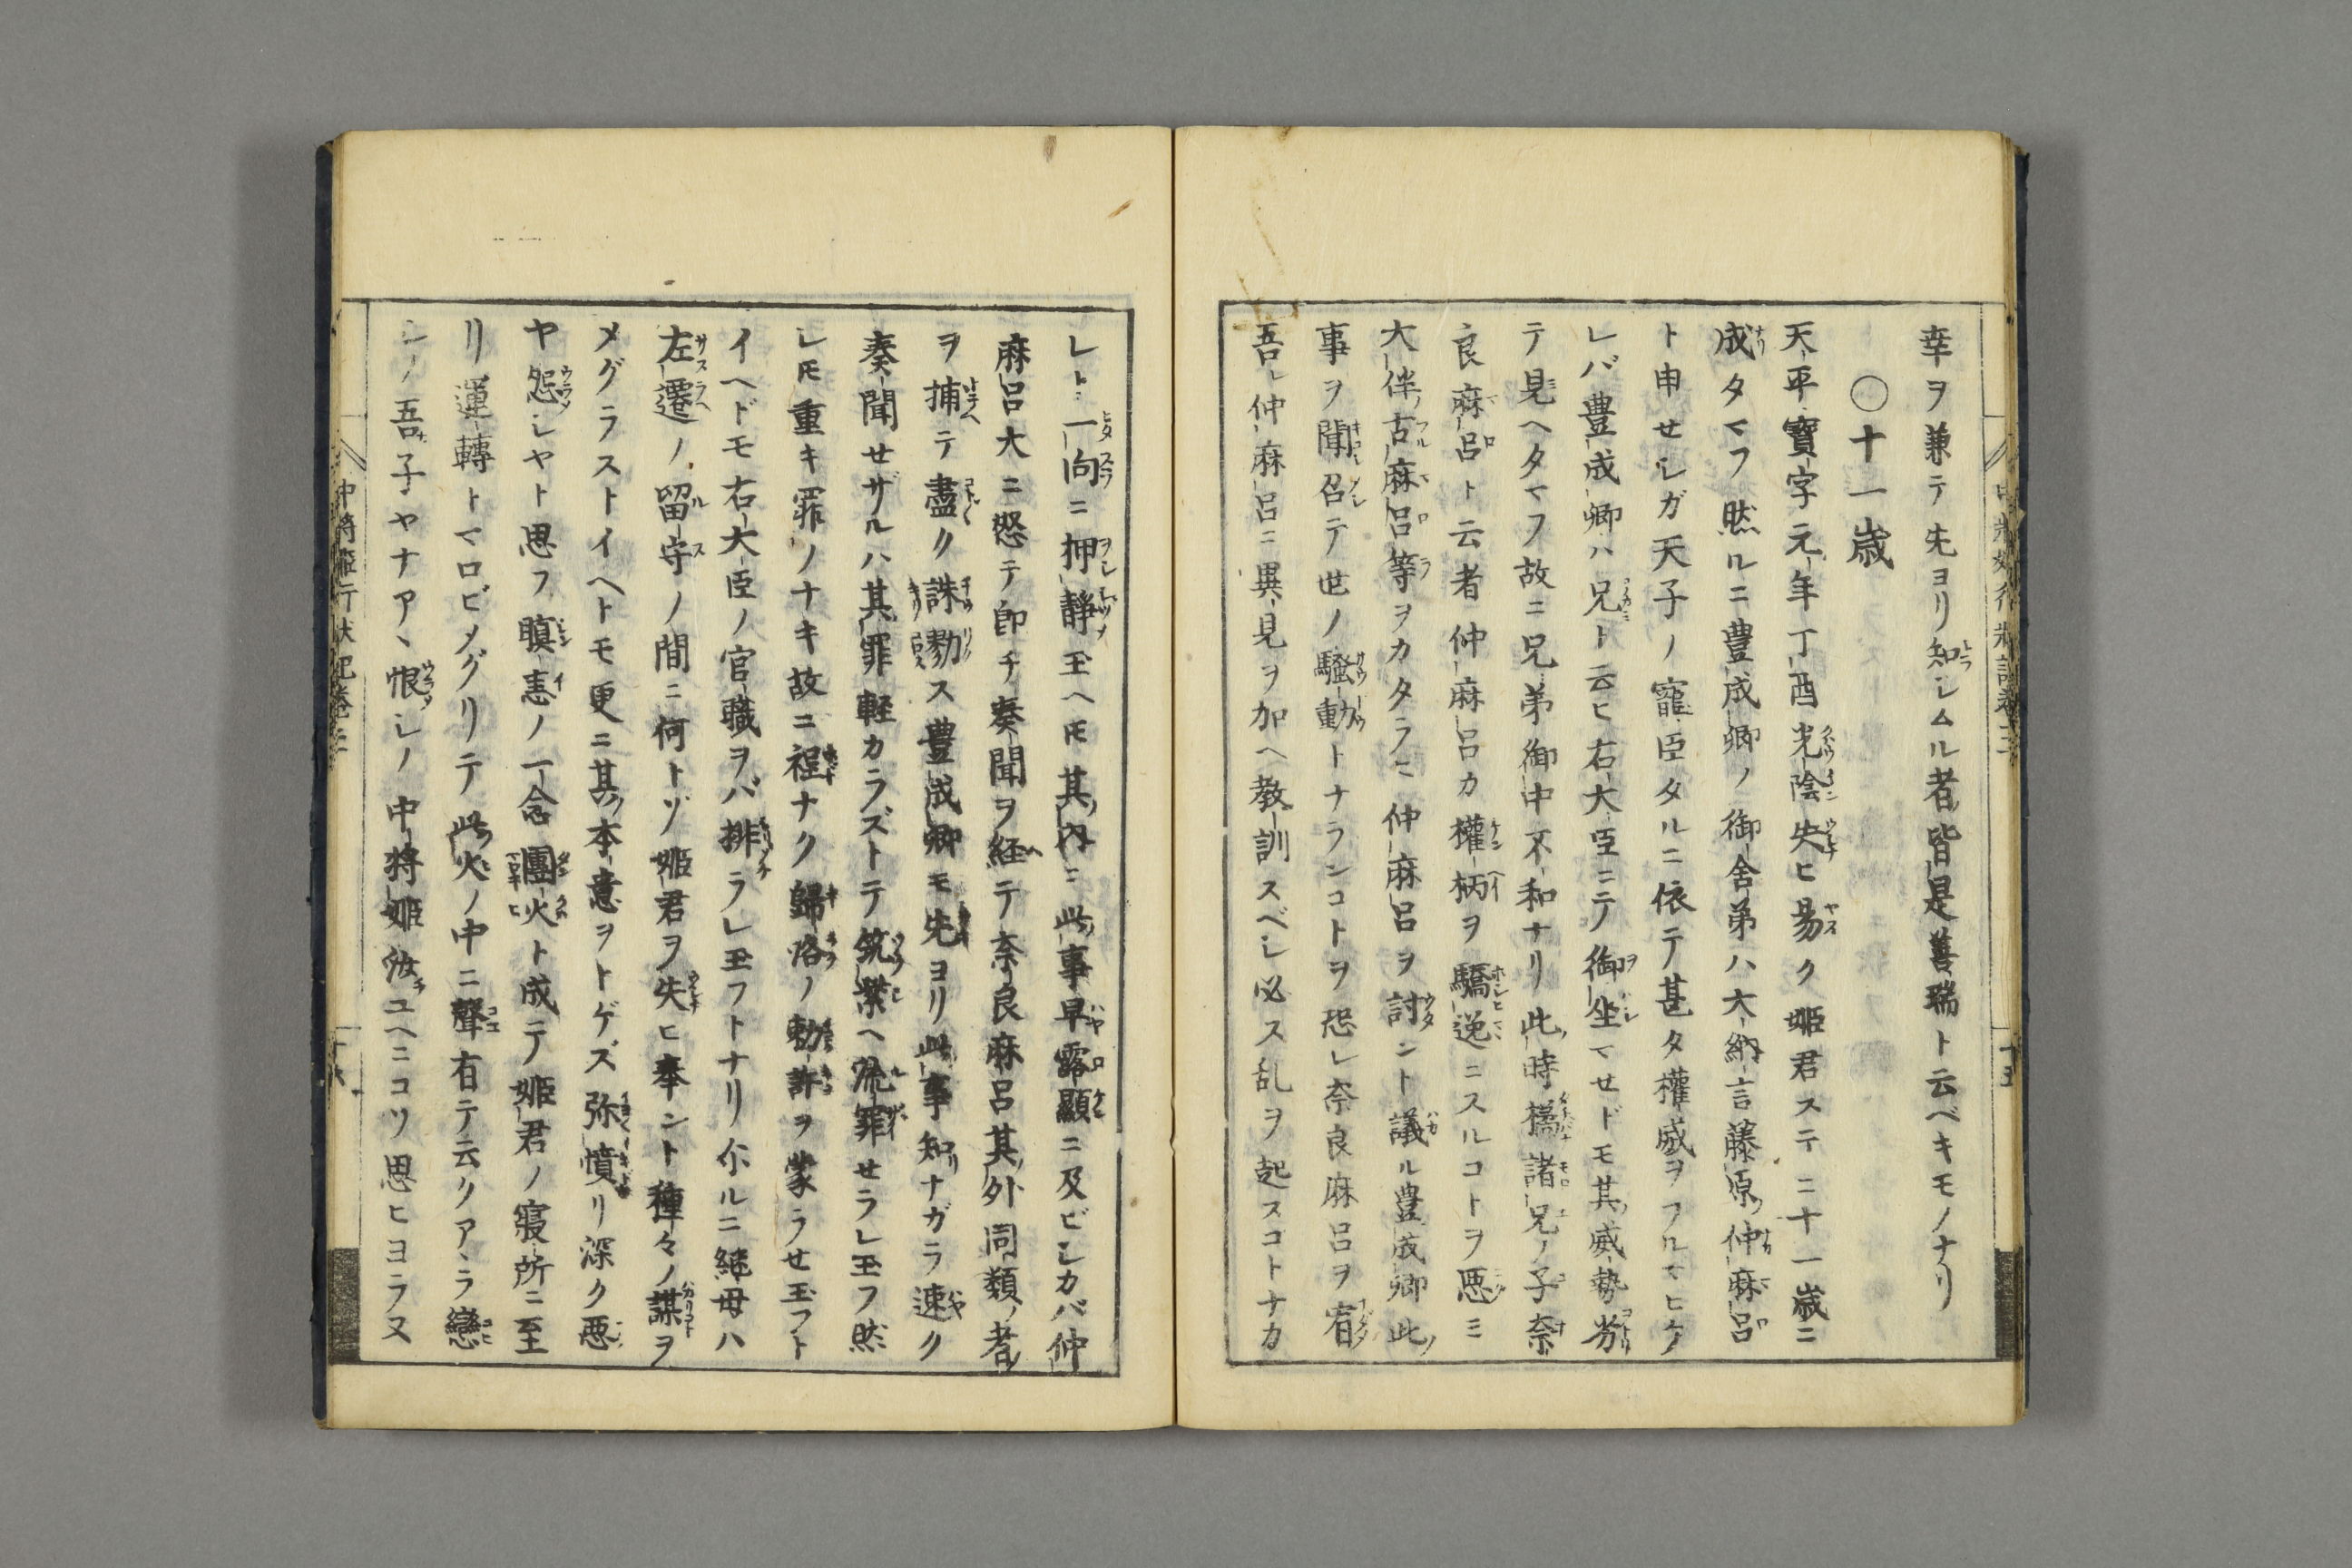 幸ヲ兼テ先ヨリ知シムル者皆是善瑞ト云ベキモノナリ
〇十一歳
天平寳字元年丁酉光陰失ヒ易ク姫君ステニ十一歳ニ
成タマフ然ルニ豊成卿ノ御舎弟ハ大納言藤原仲麻呂
ト申せシガ天子ノ寵臣タルニ依テ甚タ權威ヲフルマヒケ
レバ豊成卿ハ兄ト云ヒ右大臣ニテ御坐マせドモ其威勢劣
テ見ヘタマフ故ニ兄弟御中不和ナリ此時橘諸兄ノ子奈
良麻呂ト云者仲麻呂カ權柄ヲ驕逸ニスルコトヲ悪ミ
大伴古麻呂等ヲカタラヒ仲麻呂ヲ討ント議ル豊成卿此
事ヲ聞召テ世ノ騒動トナランコトヲ恐レ奈良麻呂ヲ宥
吾レ仲麻呂ニ異見ヲ加ヘ教訓スベシ必ス乱ヲ起スコトナカ
レト一向ニ押静玉ヘ𪜈其内ニ此事早露顯ニ及ビシカバ仲
麻呂大ニ怒テ即チ奏聞ヲ経テ奈良麻呂其外同類ノ者
ヲ捕テ盡ク誅戮ス豊成卿モ先ヨリ此事知ナガラ速ク
奏聞せザルハ其罪軽カラズトテ筑紫ヘ流罪せラレ玉フ然
レ𪜈重キ罪ノナキ故ニ程ナク歸洛ノ勅許ヲ蒙ラせ玉フト
イヘドモ右大臣ノ官職ヲバ排ラレ玉フトナリ尓ルニ継母ハ
左遷ノ留守ノ間ニ何トゾ姫君ヲ失ヒ奉ント種々ノ謀ヲ
メグラストイヘトモ更ニ其本意ヲトゲズ弥憤リ深ク悪
ヤ怨シヤト思フ瞋恚ノ一念團火ト成テ姫君ノ寝所ニ至
リ運轉トマロビメグリテ此火ノ中ニ聲有テ云クアヽラ戀
シノ吾子ヤナアヽ恨シノ中将姫汝ユヘニコソ思ヒヨラヌ
中將姫行状記巻三